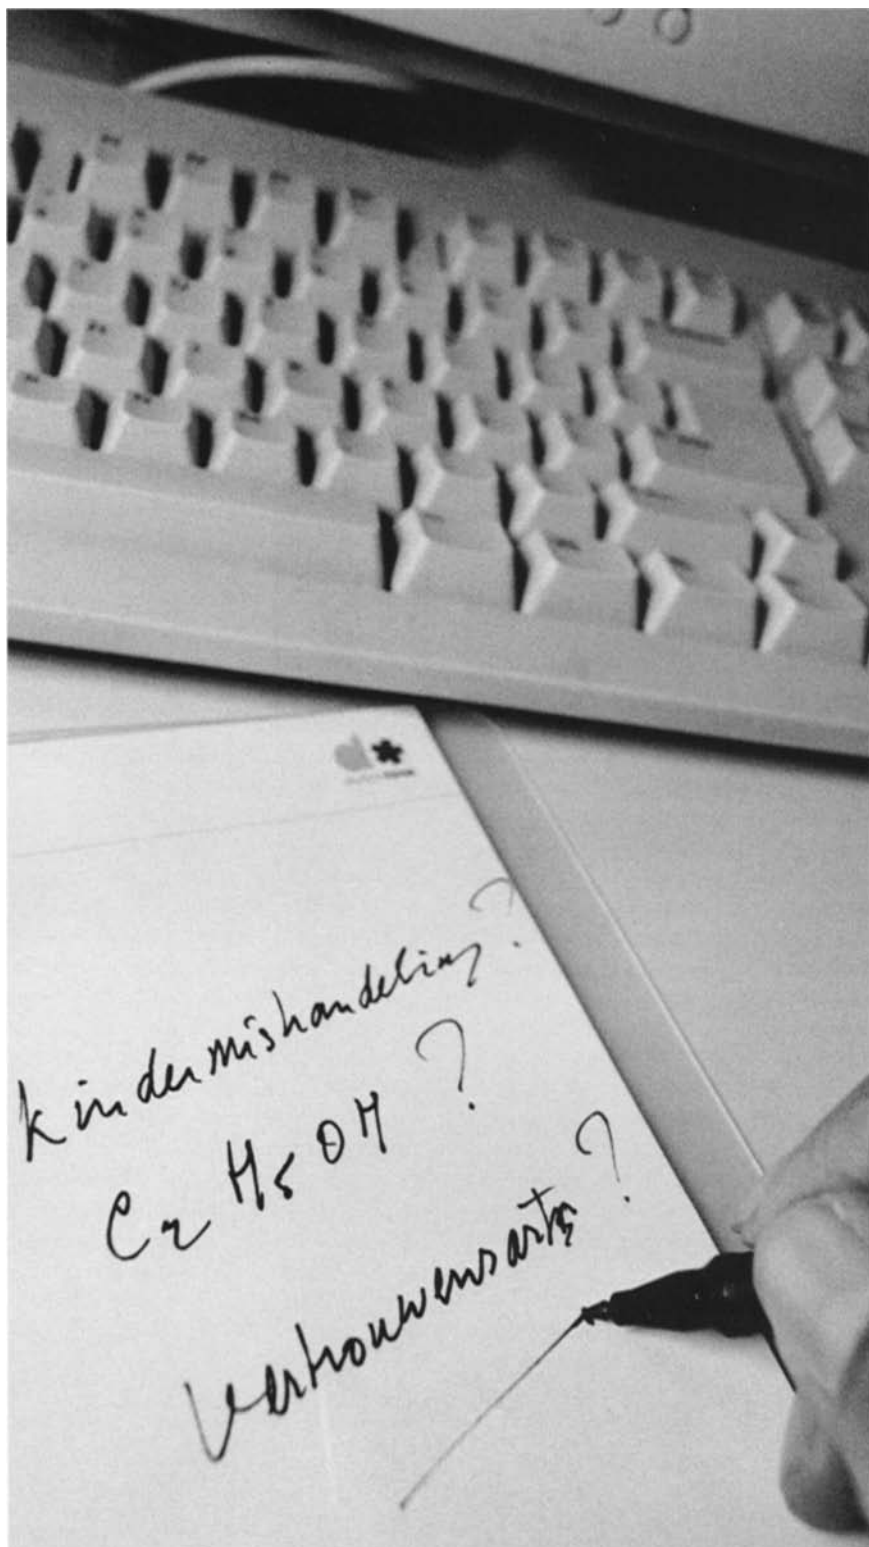 kindermishandeling?
C2H5OH?
vertrouwensarts?